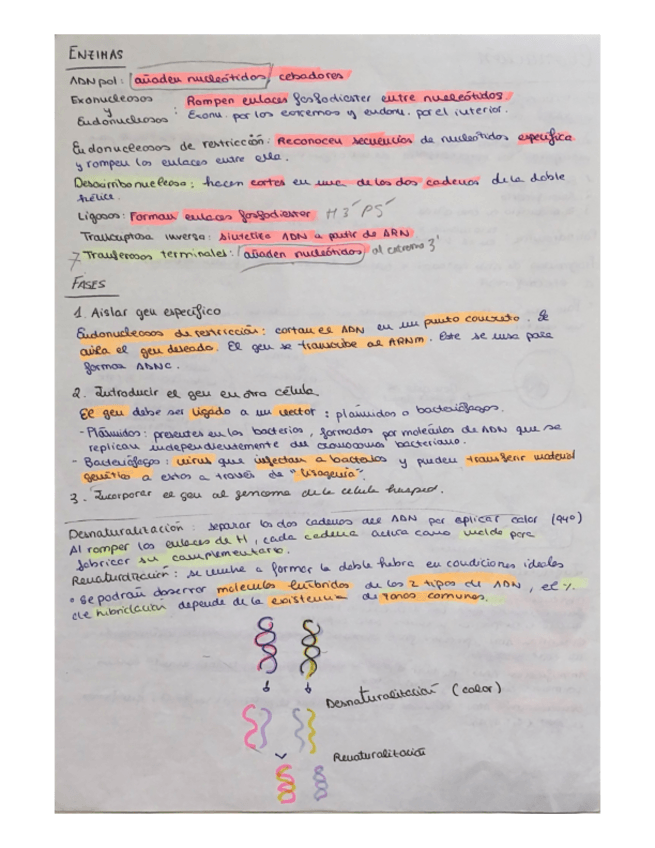 ENZIMAS
ADN pol: añaden nucleótidos, cebadores
Exonucleasas Rompen enlaces fosfodiester entre nucleótidos
y
Endonucleasas : Exonu. por los extremos y endonu. por el interior.
Endonucleasas de restricción: Reconocen secuencias de nucleótidos específica
y rompen los enlaces entre ella.
Desoxirribonucleasa: hacen cortes en una de las dos cadenas de la doble
hélice.
Ligasas: Forman enlaces fosfodiester H3´P5´
Transcriptasa inversa: sintetiza ADN a partir de ARN
7 Tranferasas terminales: añaden nucleótidos al extremo 3'
FASES
1. Aislar gen específico
Endonucleasas de restricción: cortan el ADN en un punto concreto. Se
aisla el gen deseado. El gen se transcribe al ARNm. Este se usa para
formar ADNC.
2. Introducir el gen en otra célula.
El gen debe ser ligado a un vector: plásmidos o bacteriófagos.
- Plásmidos: presentes en las bacterias, formados por moléculas de ADN que se
replican independientemente del cromosoma bacteriano.
- Bacteriófagos: virus que infectan a bacterias y pueden transferir material
genético a estas a través de "lisogenia".
3. Incorporar el gen al genoma de la célula huésped.
Desnaturalización: separar las dos cadenas del ADN por aplicar calor (94º)
Al romper los enlaces de H, cada cadena actúa como molde para
fabricar su complementario.
Renaturalización: se vuelve a formar la doble hebra en condiciones ideales
• Se podrán observar moléculas híbridas de los 2 tipos de ADN, el %
de hibridación depende de la existencia de zonas comunes.
Desnaturalización (calor)
Renaturalización